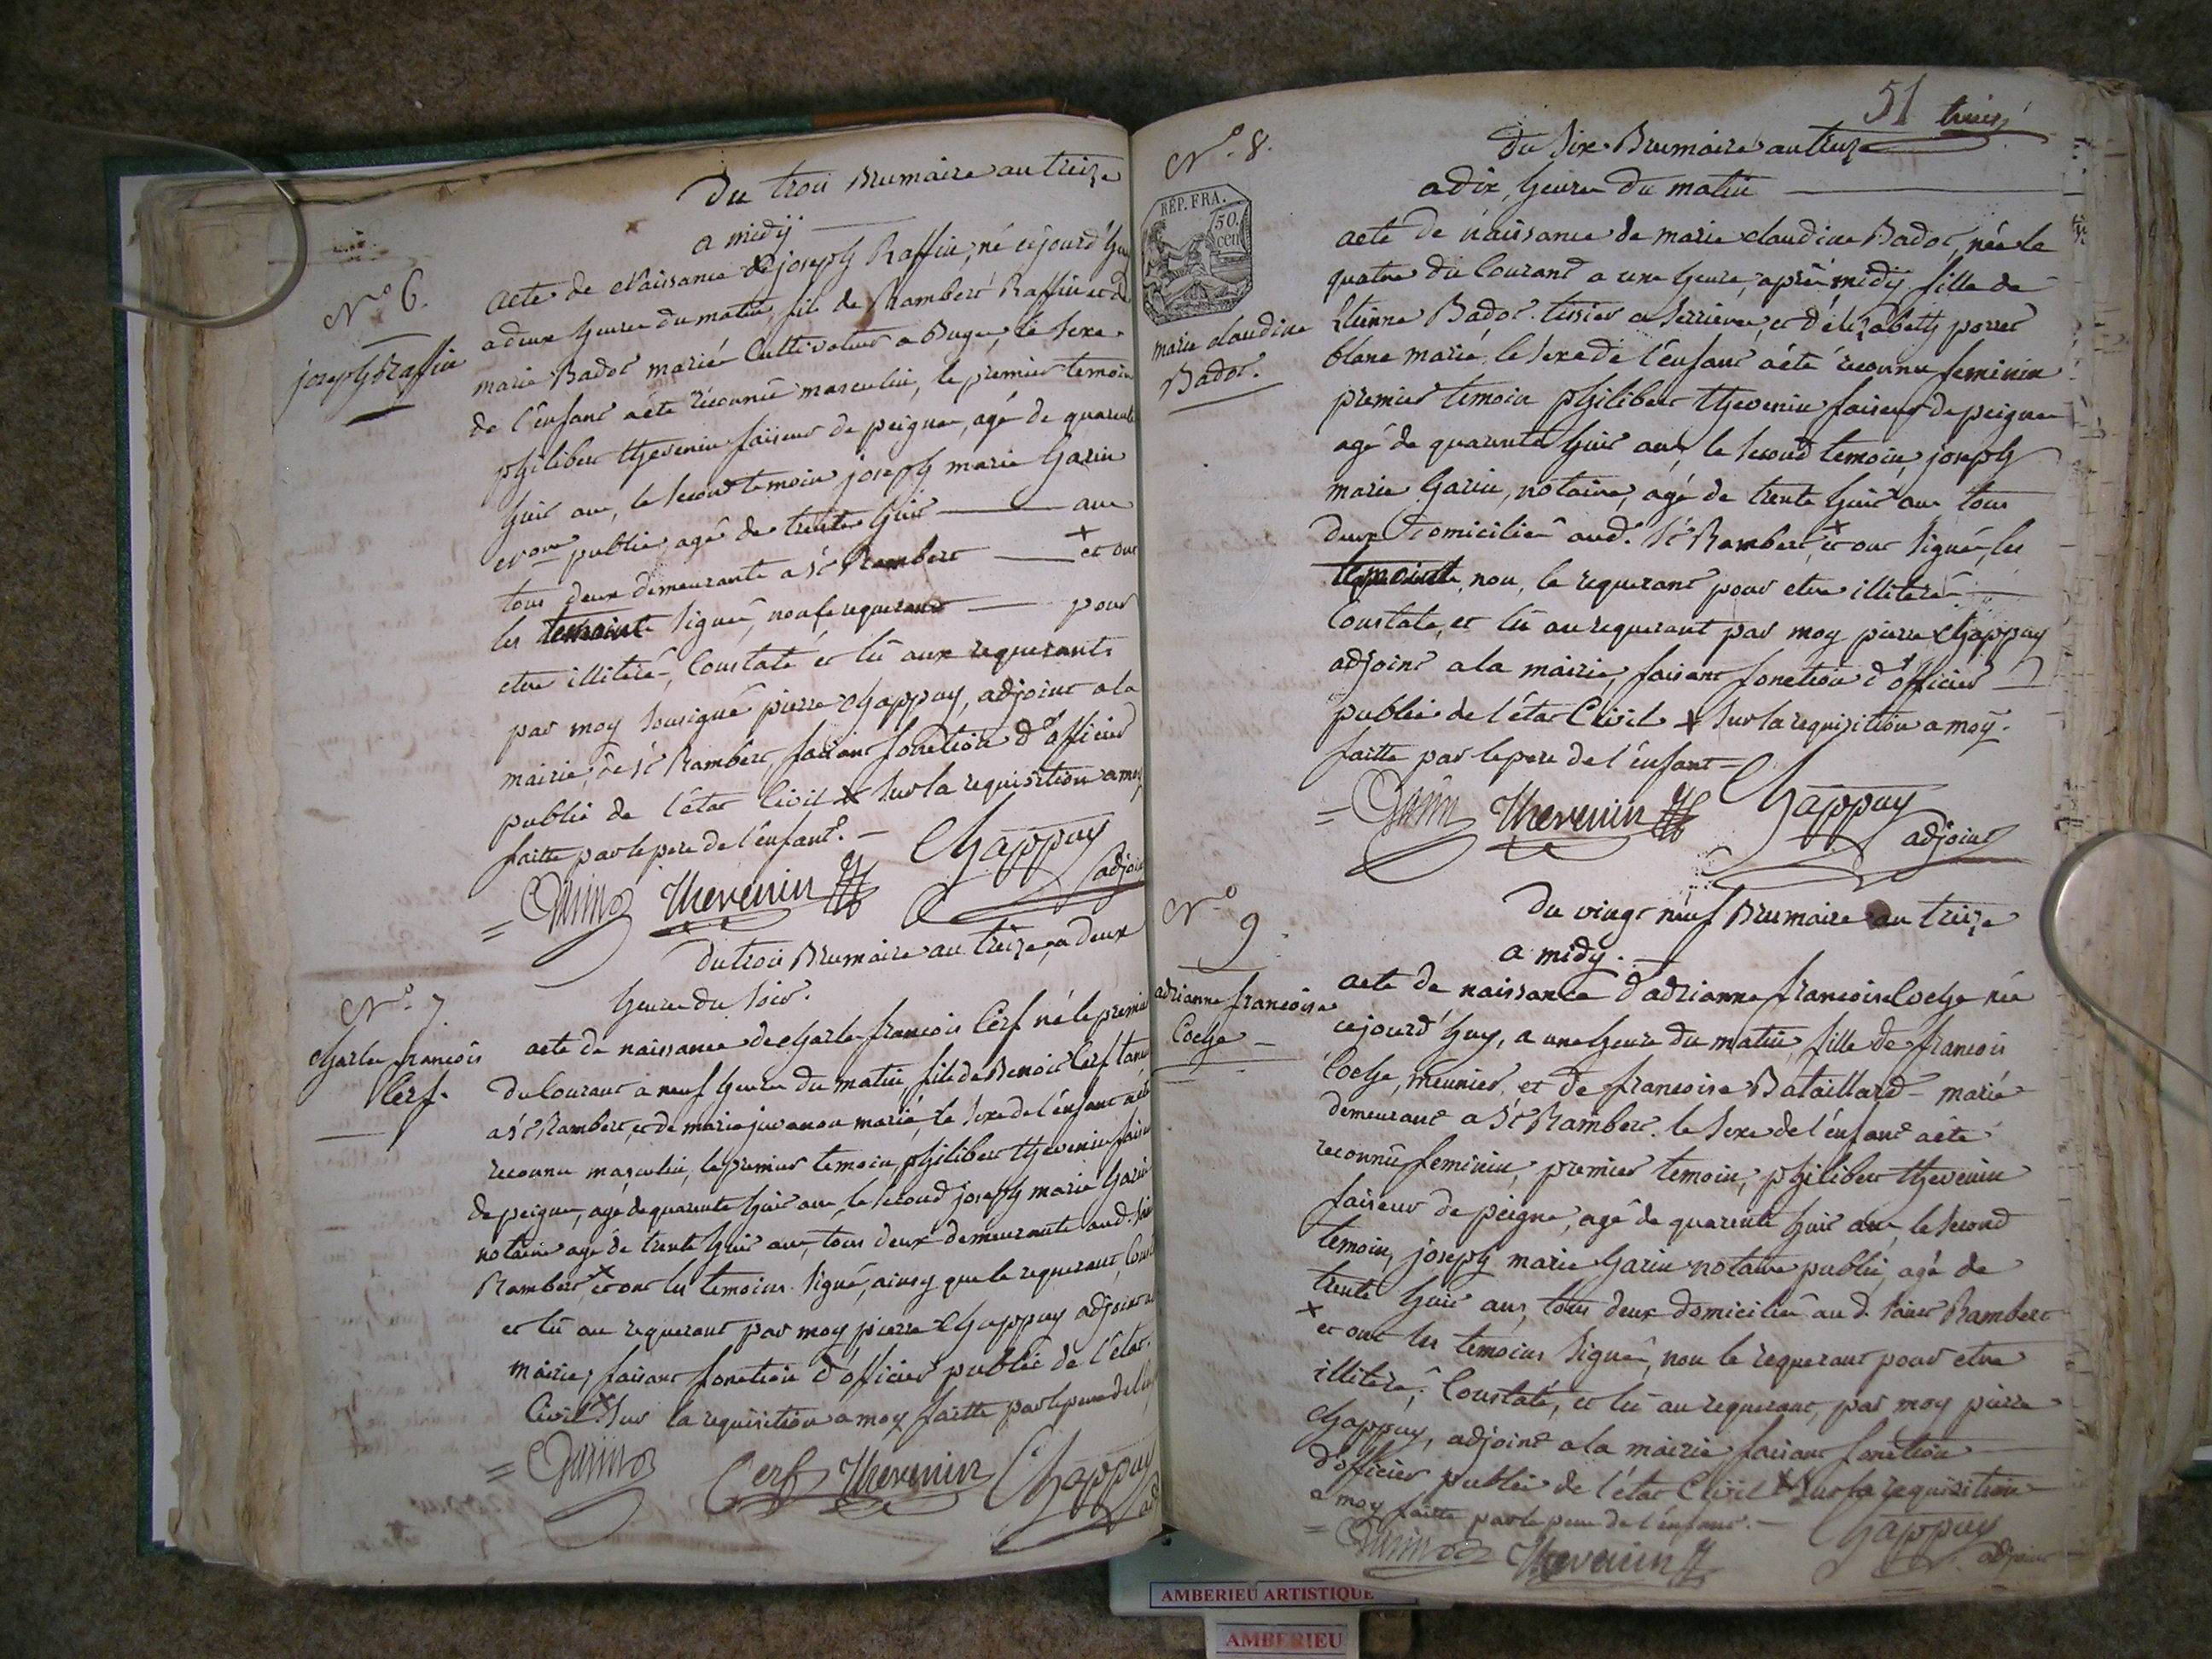 Du trois Brumaire an treize
a midÿ
N.o 6.
joseph Raffin
acte de Naissance de joseph Raffin, né cejourd'huy
a deux heures du matin, fils de Rambert Raffin et de
marie Badot mariés Cultivateur a Buges, le sexe
de l'enfant aété reconnu masculin, le premier temoin
philibert thevenin faiseur de peignes, agé de quarante
huit ans, le second temoin joseph marie Garin
public, agé de trente huit ans
tous deux demeurants a St Rambert + et ont
les temoins signé, non le requerant pour
etre illiteré, Constaté et lû aux requerants
par moy soussigné pierre Chappuy, adjoint a la
mairie de St Rambert, faisant fonction d'officier
public de l'état Civil + sur la requisition a moy
faitte par le pere de l'enfant. –
= Garin Thevenin Chappuy
adjoint
Du trois Brumaire an treize, a deux
heures du soir.
N.o 7.
Charles francois
Cerf.
acte de naissance de Charles francois Cerf né le premier
du Courant a neuf heures du matin, fils de Benoit Cerf
a St Rambert, et de marie juvanon mariés, le sexe de l'enfant aété
reconnu masculin, le premier temoin philibert thevenin faiseur
de peignes, agé de quarante huit ans, le second joseph marie Garin
notaire agé de trente huit ans, tous deux demeurants aud. Saint
Rambert + et ont les temoins signé, ainsy que le requerant,
et lû au requerant par moy pierre Chappuy adjoint
mairie, faisant fonction d'officier public de l'état
Civil + sur la requisition a moy faitte par le pere de
= Garin Cerf Thevenin Chappuy
51 trois
N.o 8.
REP. FRA.
50.
cen
marie claudine
Badot.
Du Six Brumaire an treize
a dix heures du matin
acte de naissance de marie claudine Badot, née le
quatre du Courant a une heure, après midÿ fille de
Etienne Badot tissier a Serrieres, et d'élizabeth porret
blanc mariés, le sexe de l'enfant aété reconnu feminin
premier temoin philibert thevenin faiseur de peignes
agé de quarante huit ans, le second temoin joseph
marie Garin, notaire, agé de trente huit ans tous
deux Domiciliés aud. St Rambert, + et ont signés, les
temoins, non, le requerant pour etre illiteré
Constaté, et lû au requerant par moy pierre Chappuy
adjoint a la mairie, faisant fonction d'officier
public de l'état Civil + sur la requisition a moy.
faitte par le pere de l'enfant –
= Garin Thevenin Chappuy
adjoint
N.o 9
adrianne francoise
Coche
Du vingt neuf Brumaire an treize
a midy.
acte de naissance d'adrianne francoise Coche née
cejourd'huy, a une heure du matin, fille de francois
Coche, meunier, et de francoise Bataillard – mariés
demeurant a St Rambert. le sexe de l'enfant aété
reconnû feminin, premier temoin, philibert thevenin
faiseur de peigne, agé de quarente huit ans, le second
temoin, joseph marie Garin notaire public, agé de
trente huit ans, tous deux domiciliés au d. Saint Rambert
+ et ont les temoins signé, non le requerant pour etre
illiteré, Constaté, et lû au requerant, par moy pierre
Chappuy, adjoint a la mairie faisant fonction
d'officier public de l'état Civil + sur la requisition
a moy faitte par le pere de l'enfant. –
= Garin Thevenin Chappuy
adjoint
AMBERIEU ARTISTIQUE
AMBERIEU